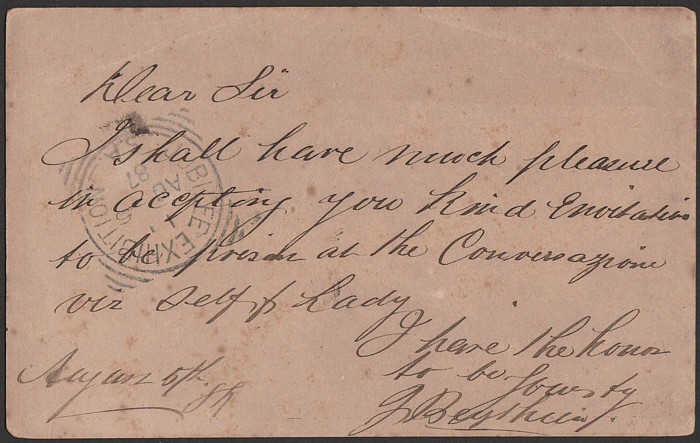 Dear Sir
I shall have much pleasure
in accepting you kind Envitation
to be at the Conversazione
viz Self & Lady
I have the honor
to be
Yours ty
August 5th
87
JUBILEE EXHIBITION
AU
87
S.A